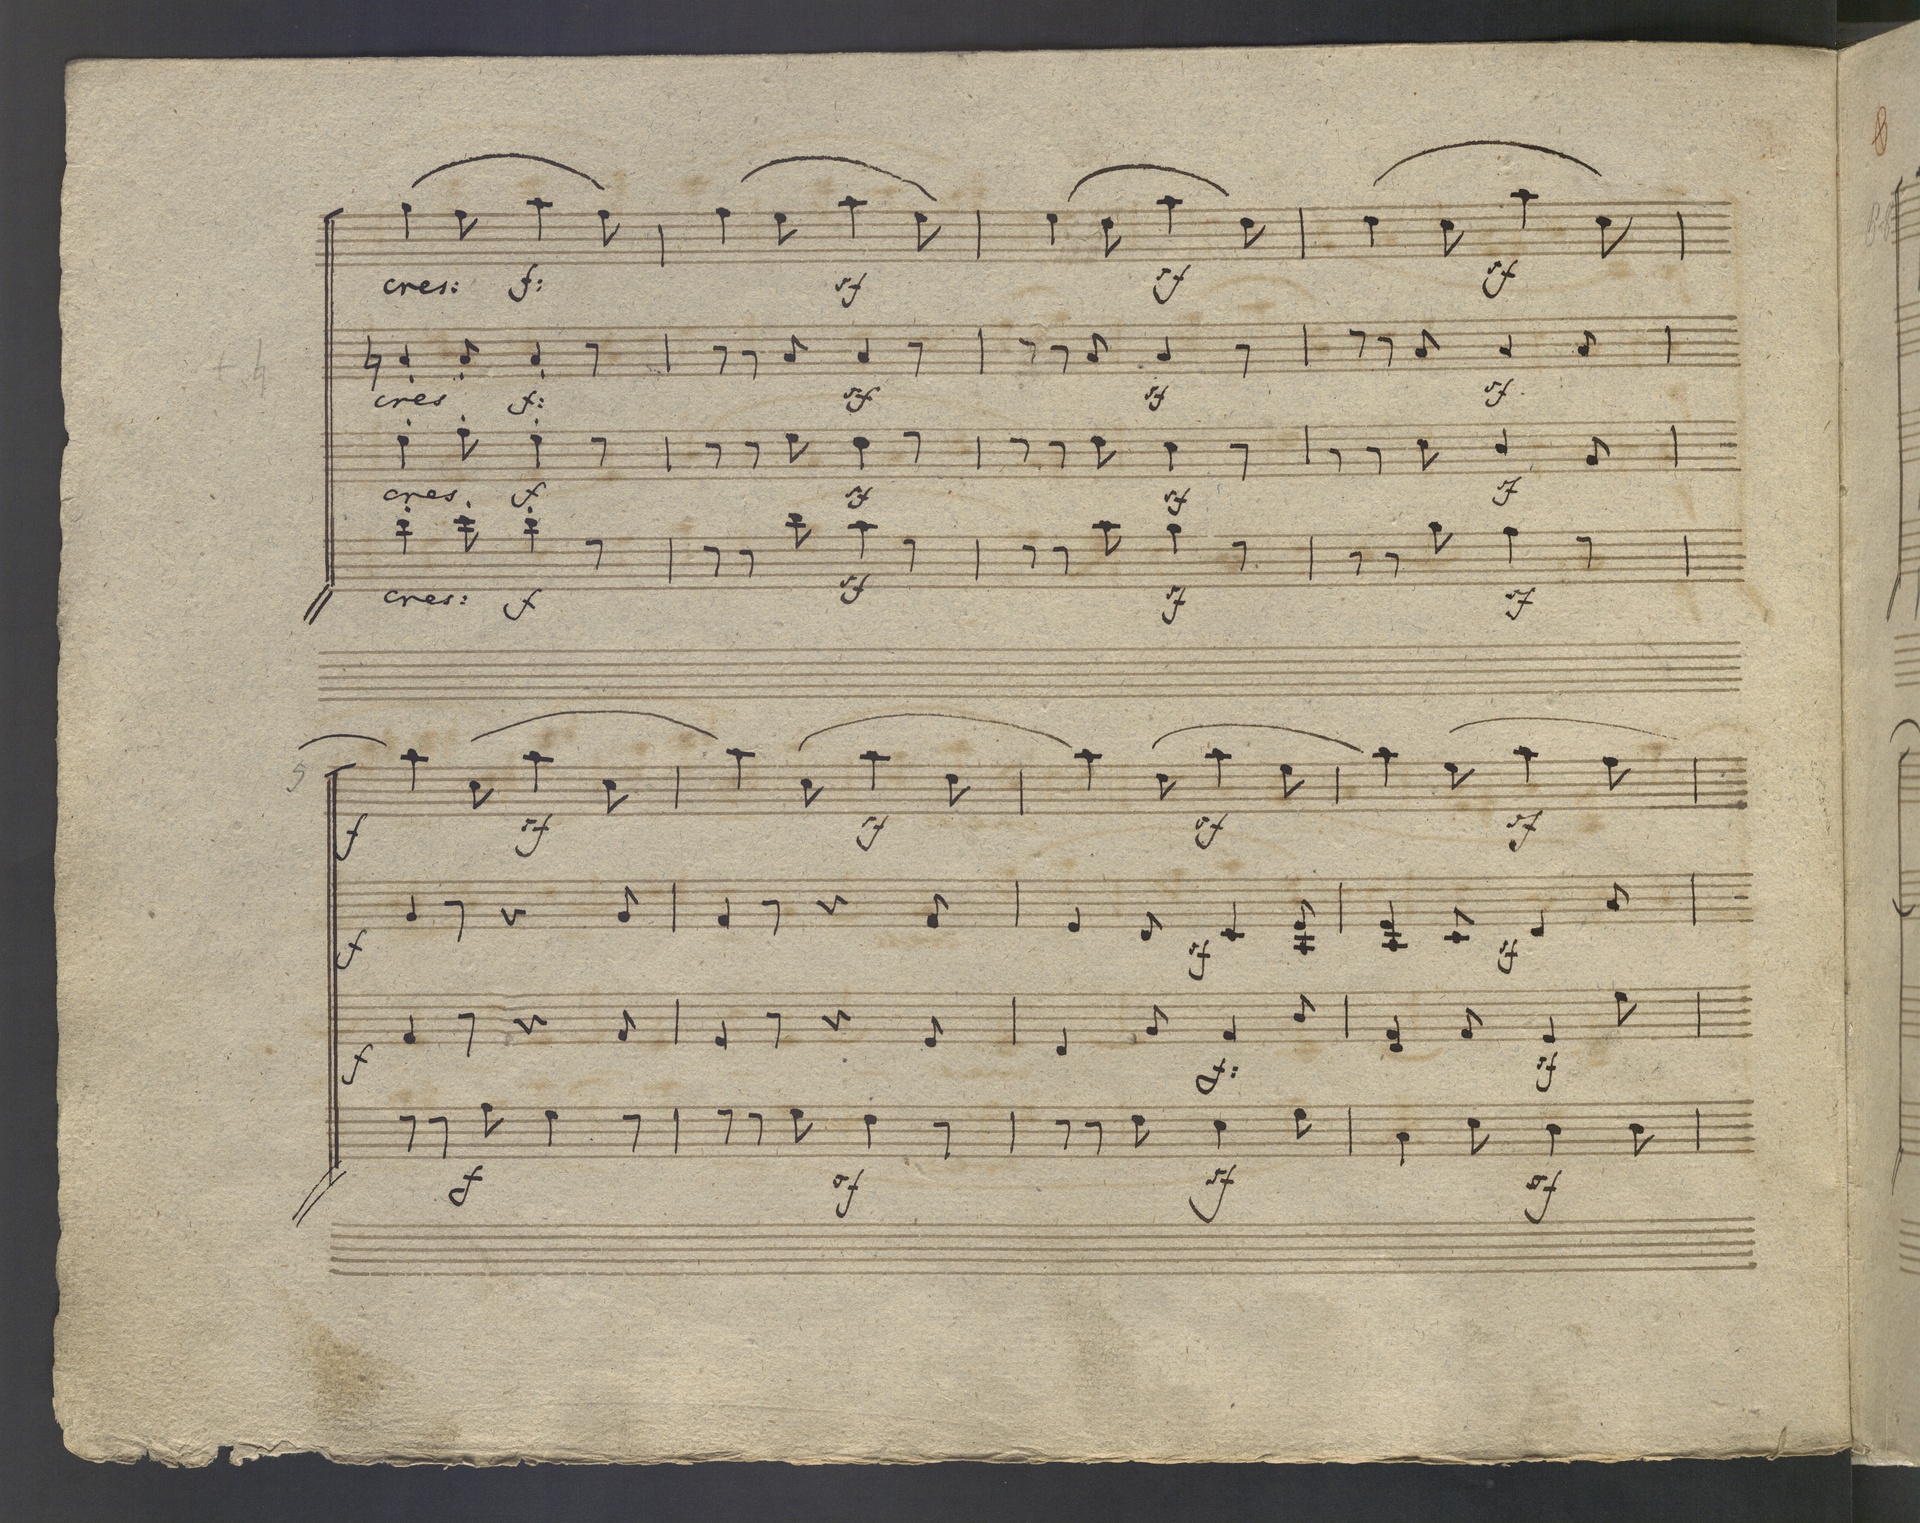 8
cres: f: sf sf sf
cres f: sf sf sf
cres. f sf sf sf
cres: f sf sf sf
5
f sf sf sf sf
f sf sf
f f: sf
f sf sf sf